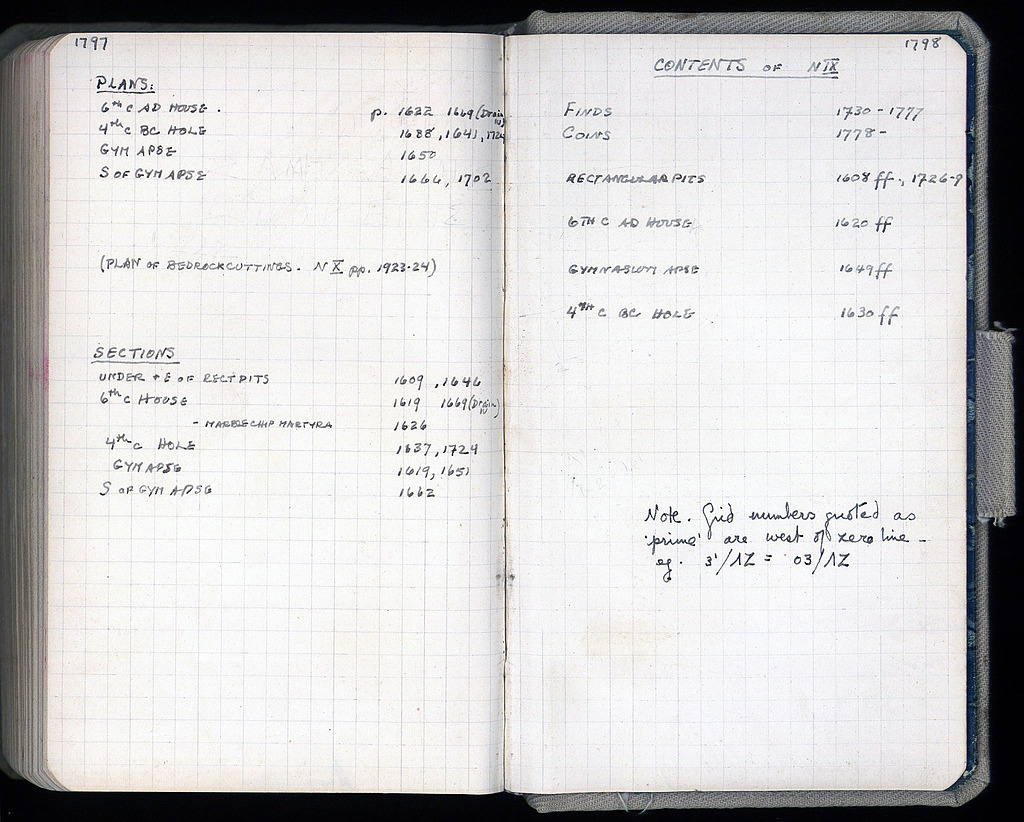 1797
PLANS:
6th C AD HOUSE. p. 1622 1669 (Drain IV)
4th C BC HOLE 1638, 1641, 1724
GYM APSE 1650
S OF GYM APSE 1666, 1702
(PLAN OF BEDROCK CUTTINGS. N X pp. 1923-24)
SECTIONS
UNDER + E OF RECT PITS 1609, 1646
6th C HOUSE 1619 1669 (Drain IV)
- MARBLE CHIP 1626
4th C HOLE 1637, 1724
GYM APSE 1619, 1651
S OF GYM APSE 1662
1798
CONTENTS OF N IX
FINDS 1730-1777
COINS 1778-
RECTANGULAR PITS 1608 ff., 1726-9
6TH C AD HOUSE 1620 ff
GYMNASIUM APSE 1649 ff
4TH C BC HOLE 1630 ff
Note. Grid numbers quoted as
'prime' are west of zero line -
eg. 3'/ΛZ = 03/ΛZ